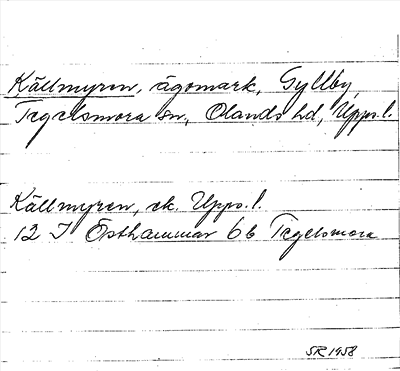 Källmyren, ägomark, Gyllby,
Tegelsmora sn, Olands hd, Upps.l.
Källmyren, ek. Upps.l.
12 I Östhammar 6b Tegelsmora
SR 1958